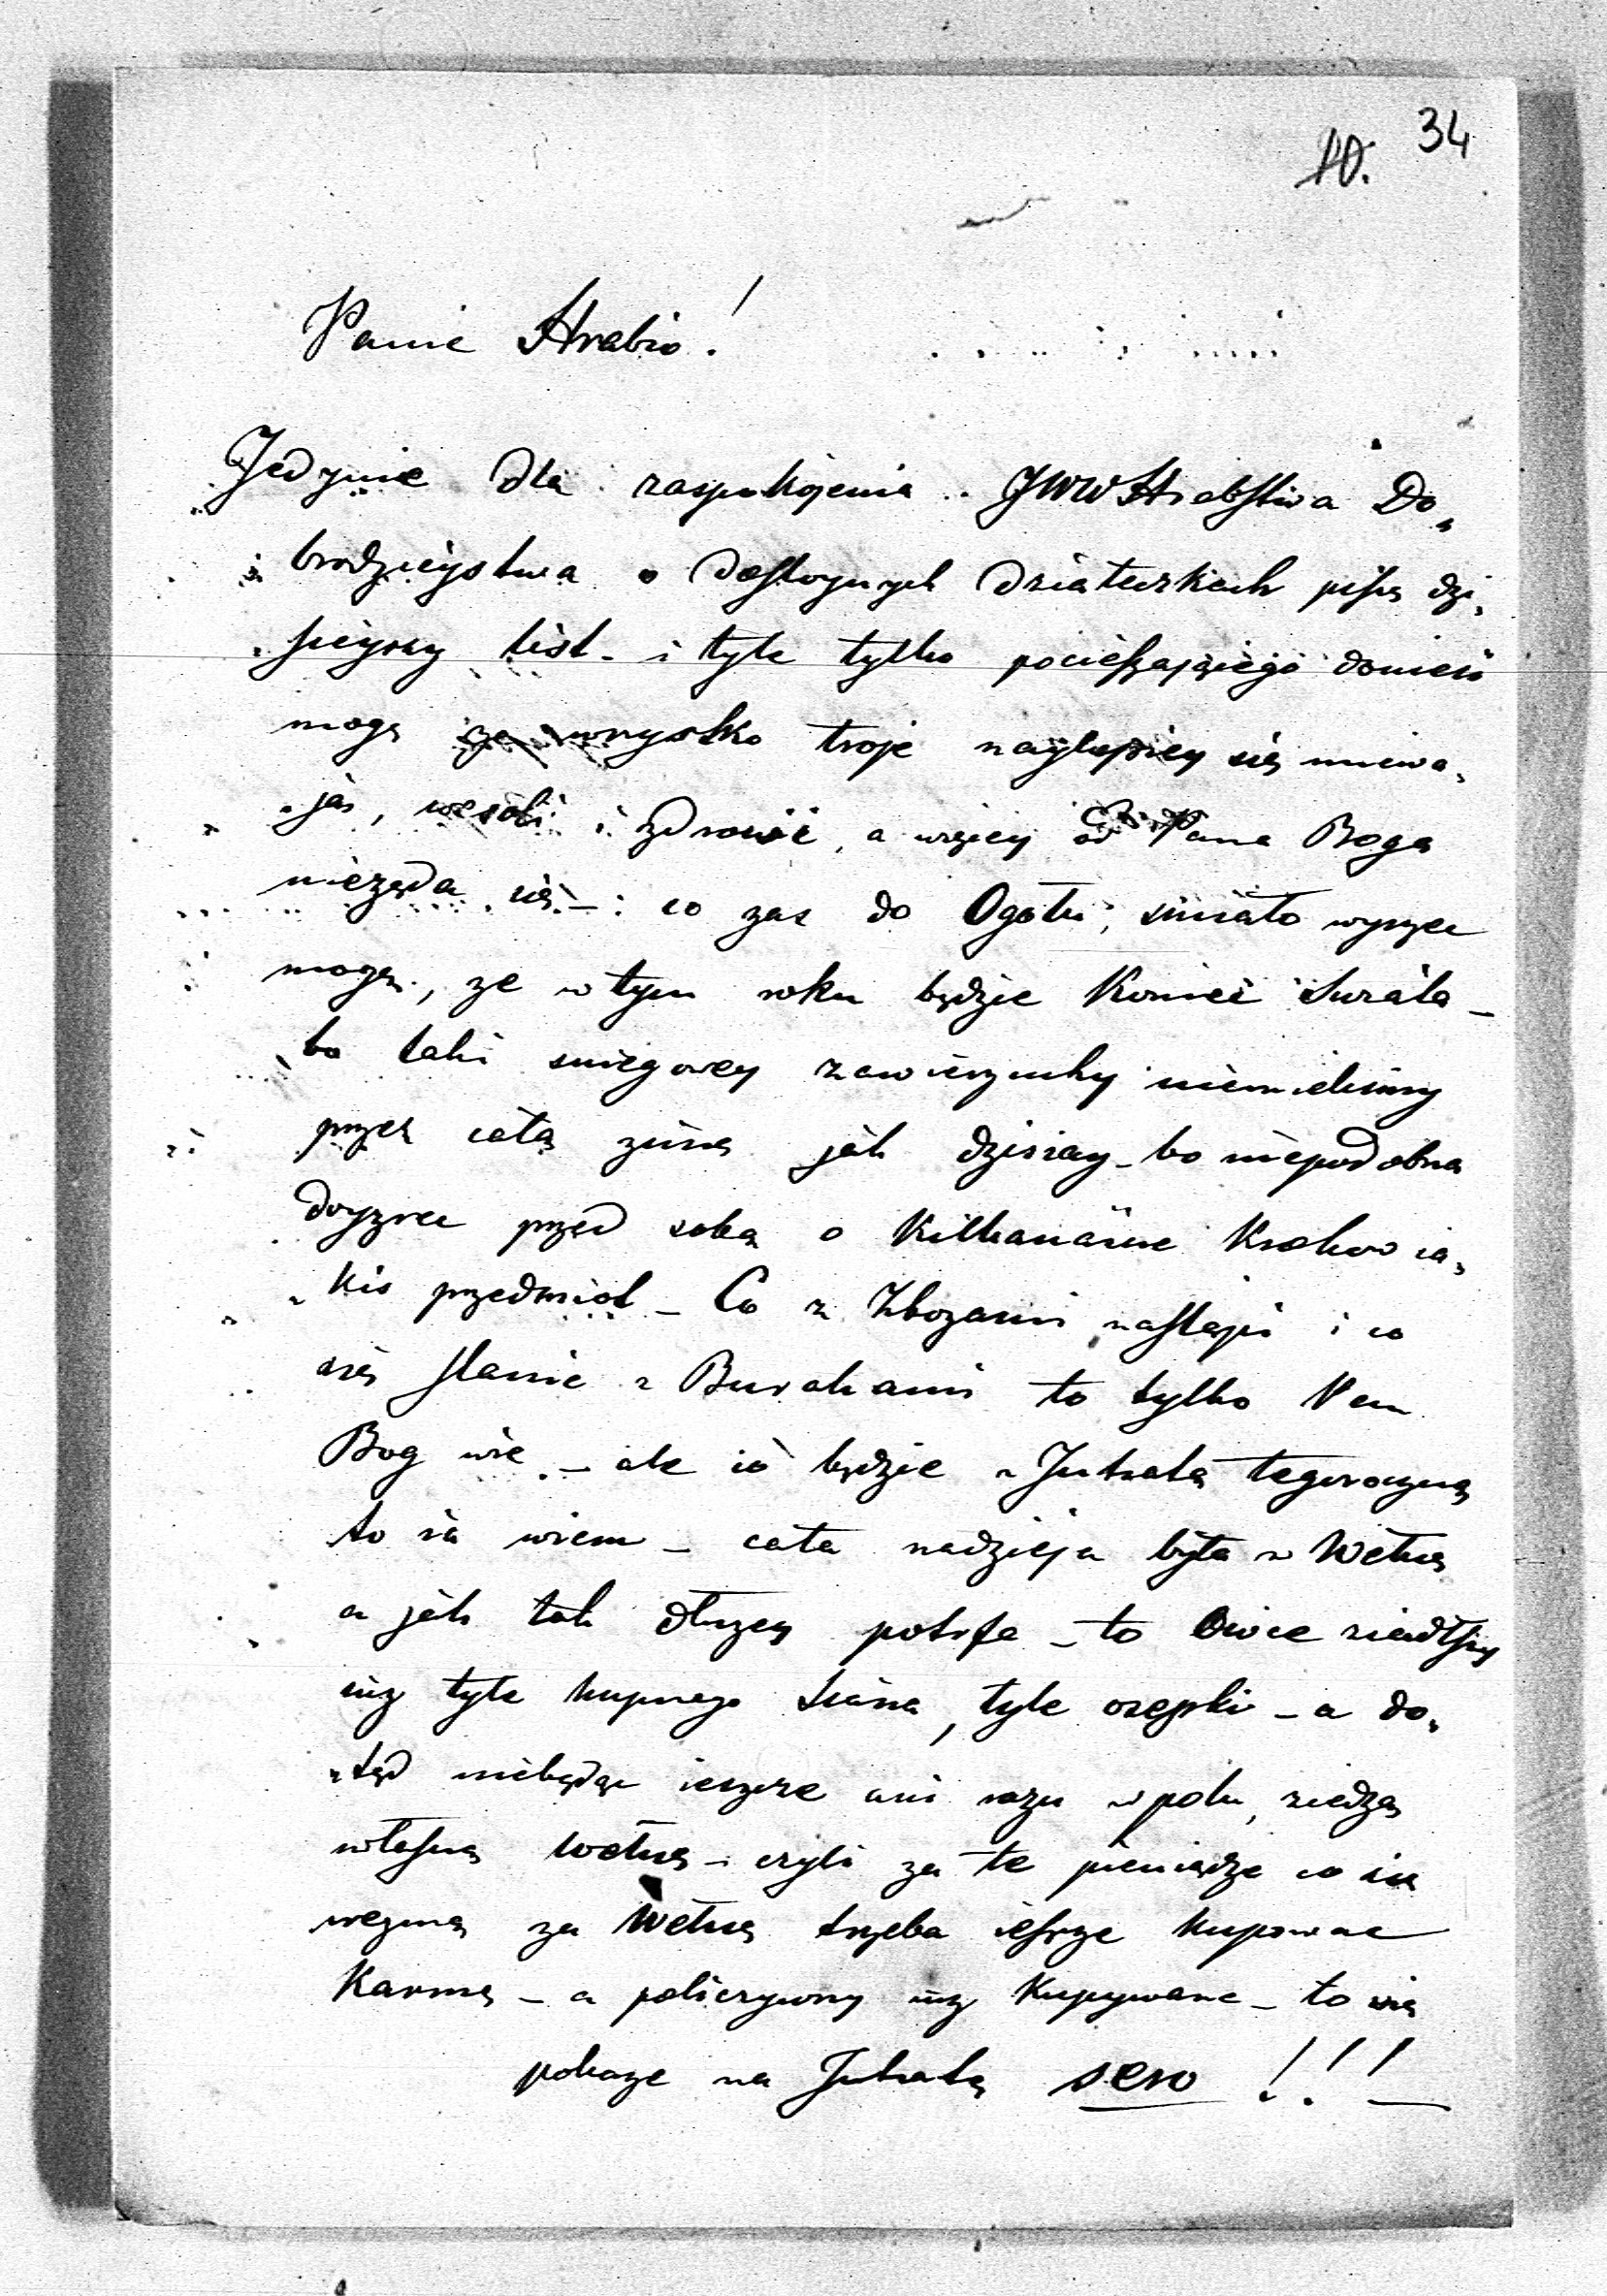 34
10.
Panie Hrabio!
Jedynie dla zaspokojenia JWW Hrabstwa Do„
„brodzieystwa o dostoynych Dziateczkach piszę dzi„
„sieyszy list – i tyle tylko pocieszającego donieść
mogę ze wszystko troje naylepiey się miewa„
„ją, wesoli i zdrowi, a więcey od Pana Boga
nieżąda się – co zas do Ogołu, smiało wyrzec
mogę, ze w tym roku będzie Koniec swiata –
bo taki sniegowey zawieruchy niemielismy
przez całą zimę jak dzisiay – bo niepodobna
doyzrec przed sobą o Kilkanascie Krokow ia„
„kis przedmiot – Co z Zbozami nastąpi i co
się stanie z Burakami to tylko Pan
Bog wie – ale co będzie z Intratą tegoroczną
to ia wiem – cała nadzieja była w Wełnę
a jak tak dłuzey potrfa – to Owce ziadłszy
iuz tyle kupnego siana, tyle osepki – a do„
„tąd niebędąc ieszcze ani razu w polu, ziedzą
własną wełnę – czyli za te pieniądze co się
wezmą za Wełnę trzeba iescze kupowac
Karmę – a policzywszy iuz Kupywane – to się
pokaze na Intratę sero !!! –